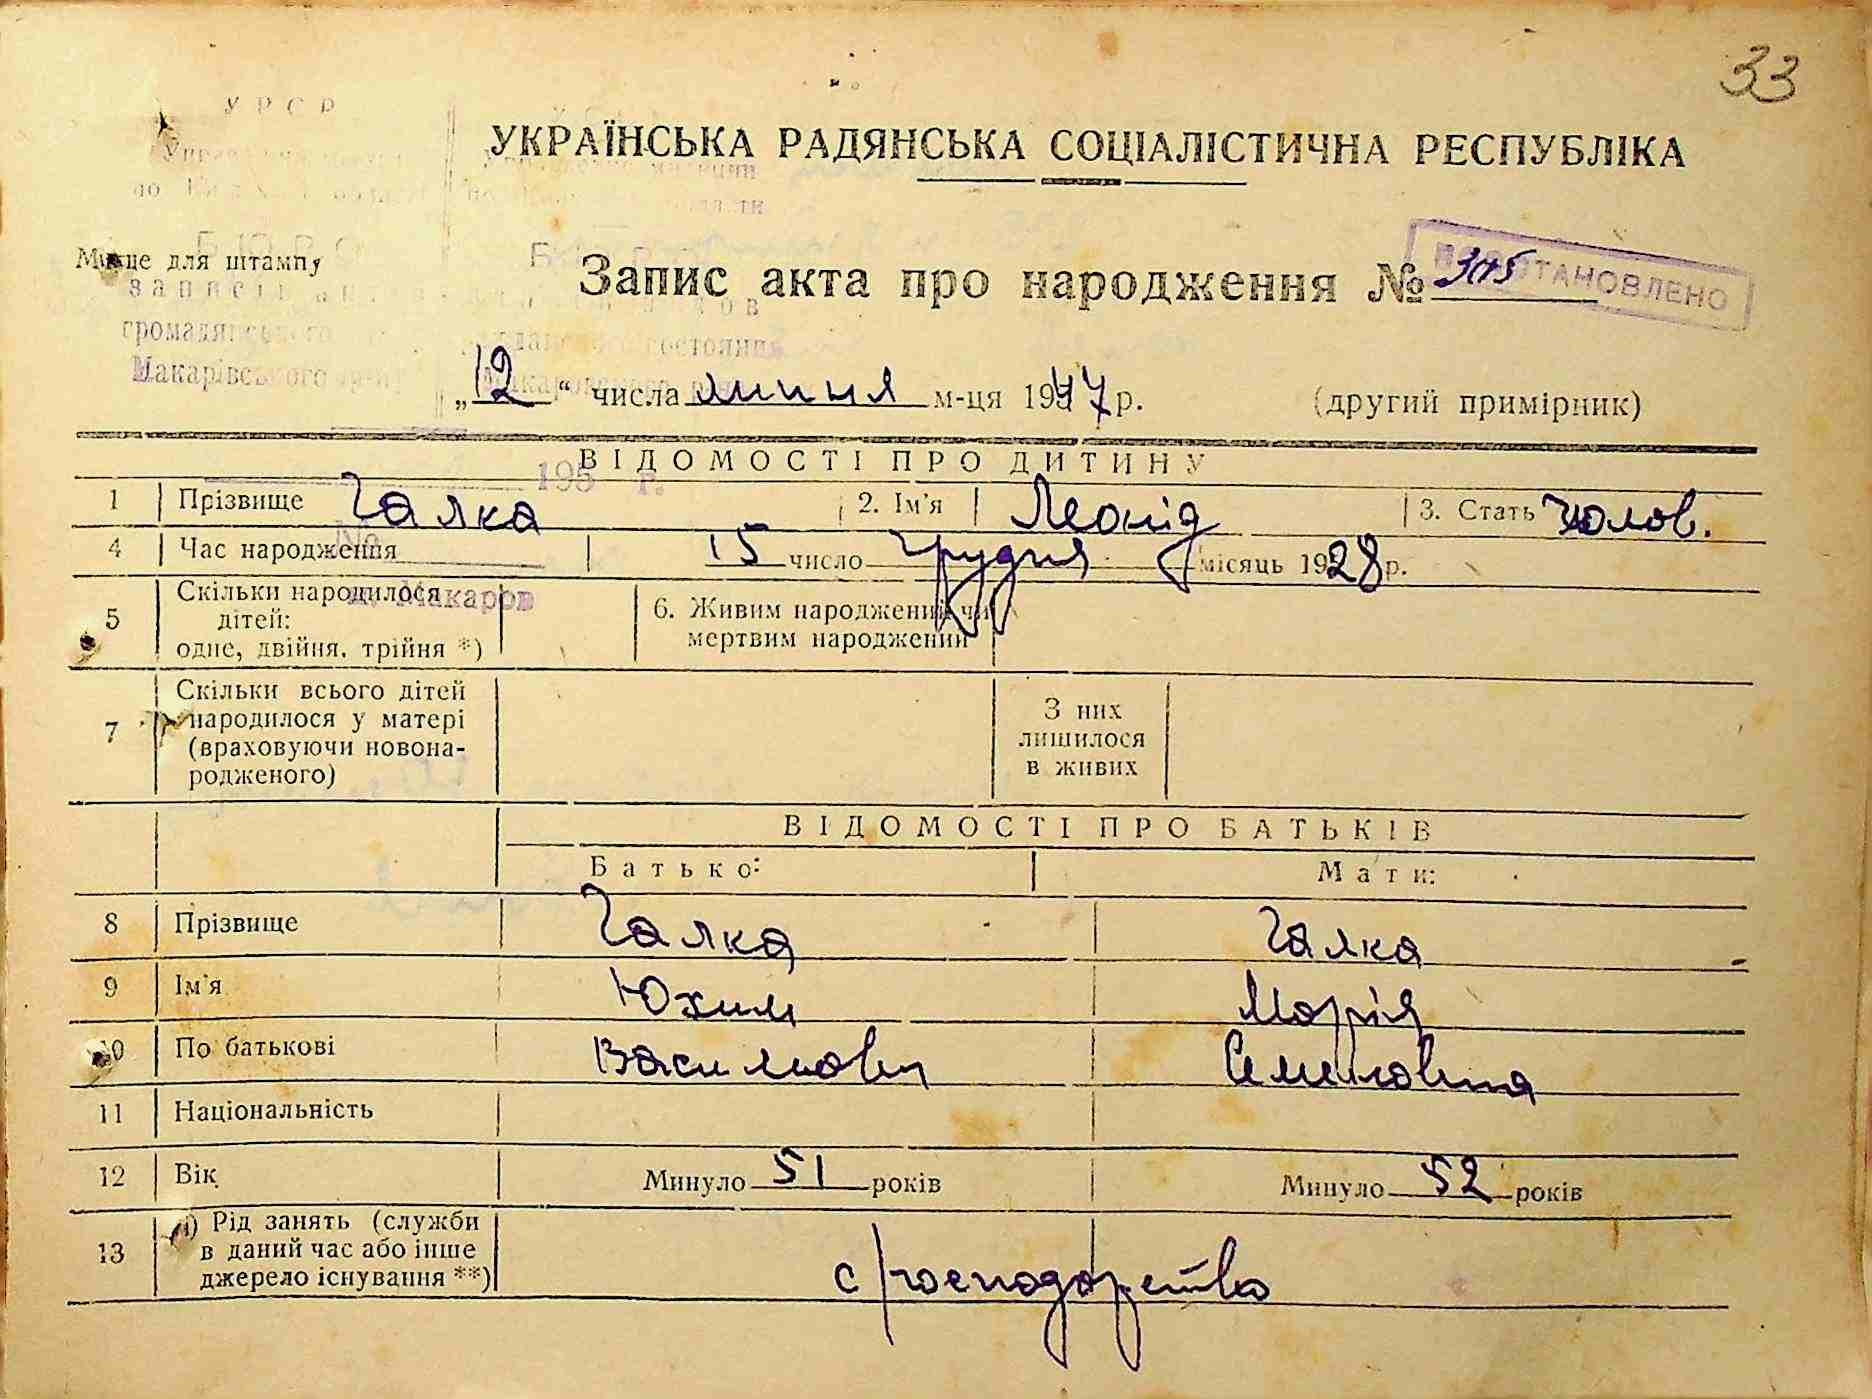 33
У Р С Р
УКРАЇНСЬКА РАДЯНСЬКА СОЦІАЛІСТИЧНА РЕСПУБЛІКА
Місце для штампу
Запис акта про народження №
ВОССТАНОВЛЕНО
громадянського
Макарівського
„12“ числа липня м-ця 1947 р. (другий примірник)
ВІДОМОСТІ ПРО ДИТИНУ
195 г.
1 Прізвище Галка 2. Ім'я Леонід 3. Стать чолов.
№
4 Час народження 15 число грудня місяць 1928 р.
м. Макаров
5 Скільки народилося дітей: одне, двійня, трійня *) 6. Живим народжений чи мертвим народжений
7 Скільки всього дітей народилося у матері (враховуючи новона-родженого) З них лишилося в живих
ВІДОМОСТІ ПРО БАТЬКІВ
Батько: Мати:
8 Прізвище Галка Галка
9 Ім'я Юхим Марія
10 По батькові Васильович Семеновна
11 Національність
12 Вік Минуло 51 років Минуло 52 років
13 а) Рід занять (служби в даний час або інше джерело існування **) с/господарство